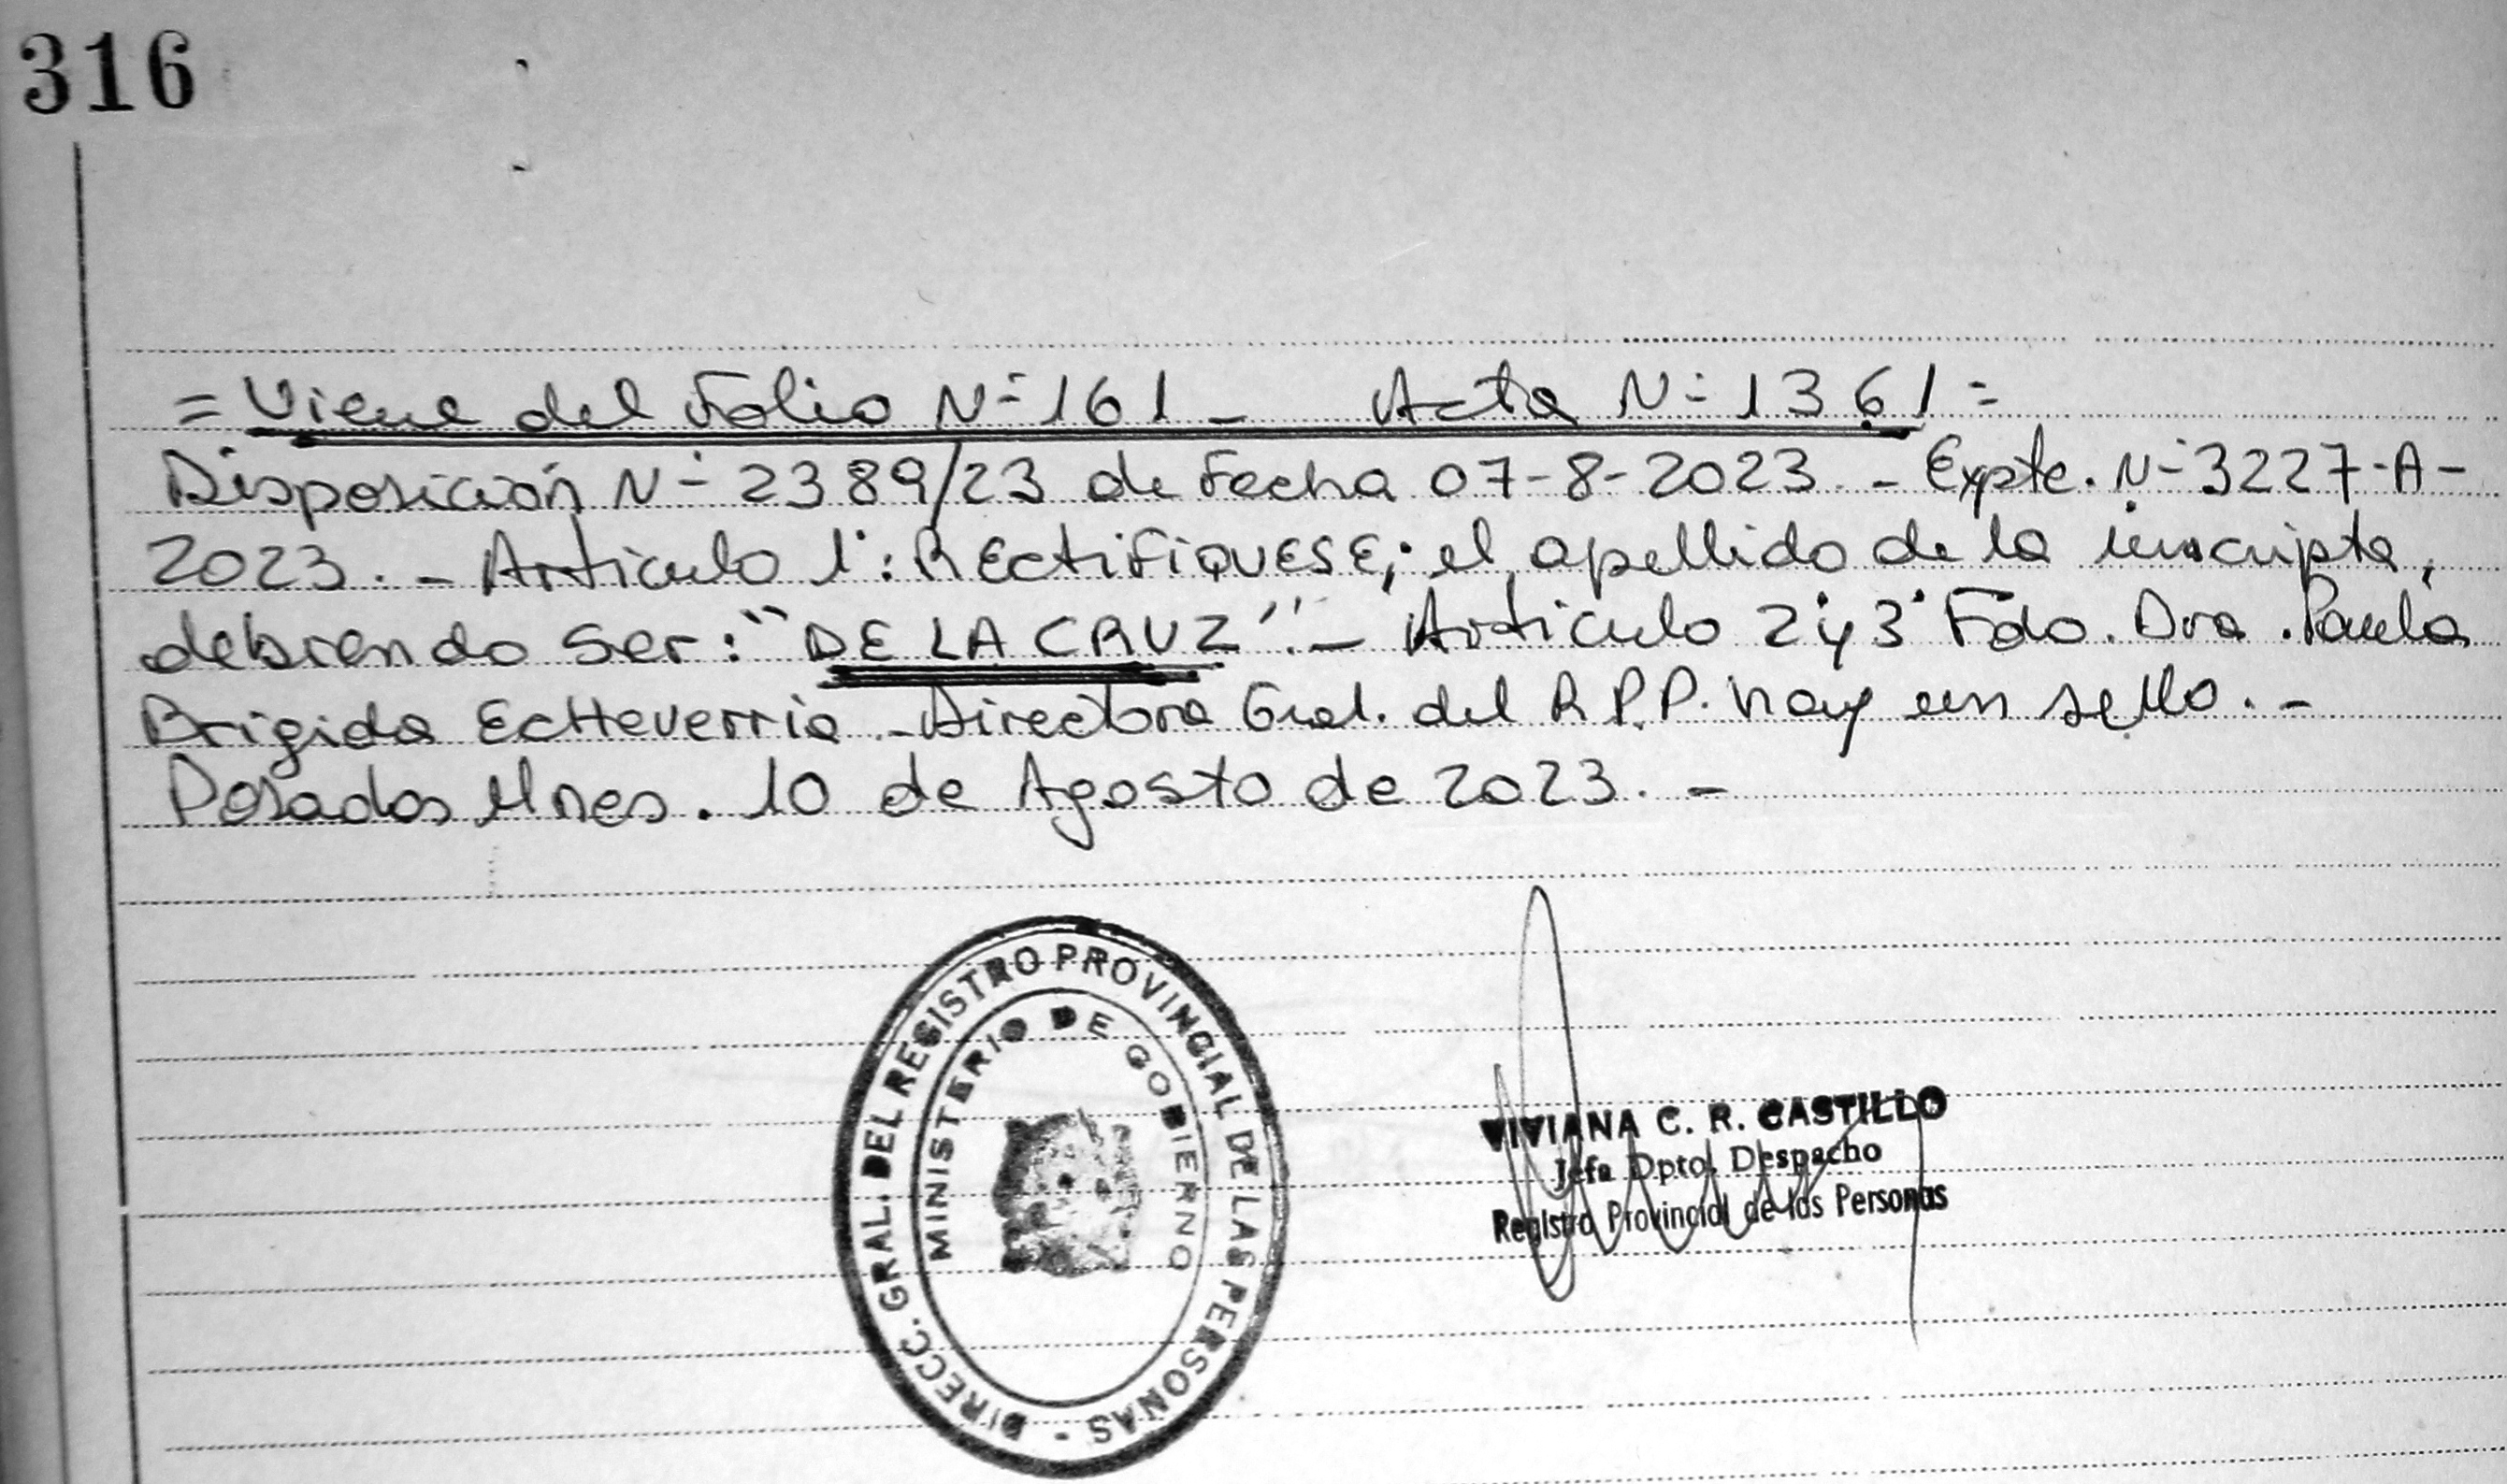 316
= Viene del Folio Nº 161 - Acta Nº 1361 =
Disposición Nº 2389/23 de Fecha 07-8-2023. - Expte. Nº 3227-A-
2023. - Articulo 1°: RECtiFiQUESE; el apellido de la inscripta,
debiendo ser: "DE LA CRUZ". - Articulo 2° y 3° Fdo. Dra. Paula
Brigida EcHeverria - Directora Gral. del R.P.P. hay un sello. -
Posadas Mnes. 10 de Agosto de 2023. -
DIRECC. GRAL. DEL REGISTRO PROVINCIAL DE LAS PERSONAS -
MINISTERIO DE GOBIERNO
VIVIANA C. R. CASTILLO
Jefa Dpto. Despacho
Registro Provincial de las Personas